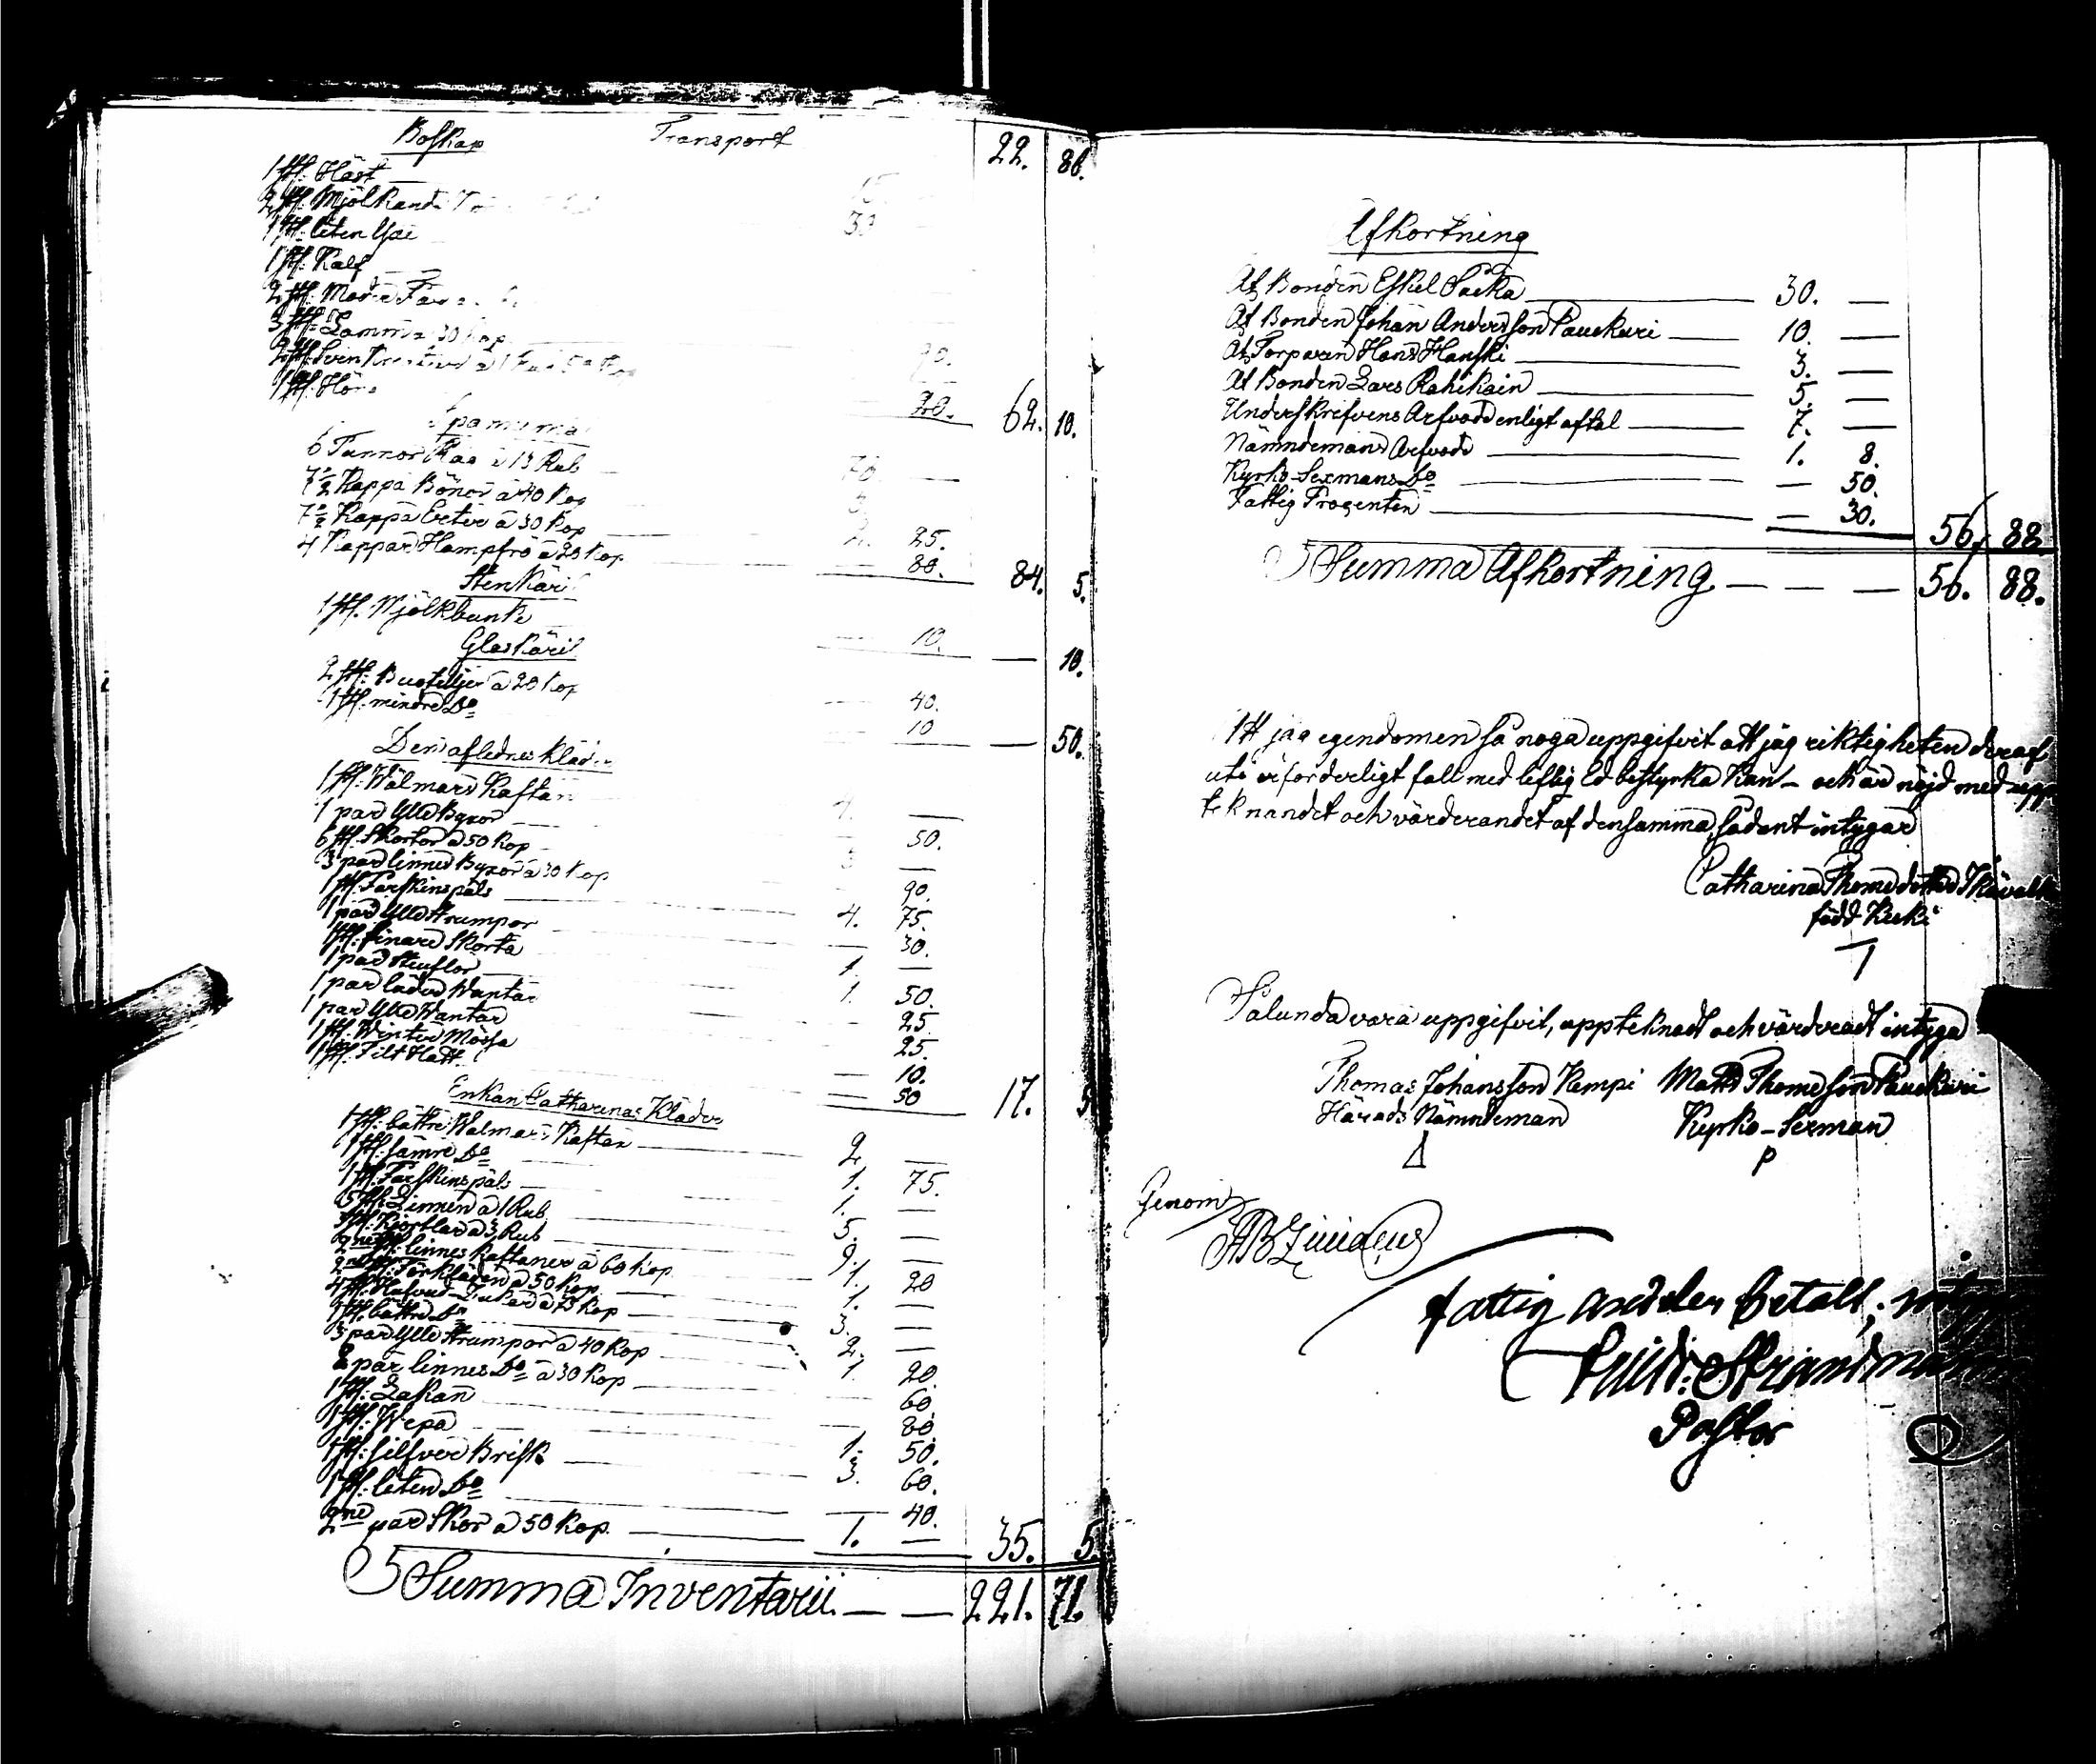 Boskap Transport 22. 86.
1 st: Häst 15
2 st: Mjölkande 30
1 st: liten Qvi
1 st: Kalf
2 st: Moder Får
3 st: Lamm a 30 kop 90.
1 st: Hön 20. 62. 10.
Spanmål
6 Tunnor Råg a 13 Rub 78
7½ Kappa Bönor a 40 Kop 3
7½ Kappa Erter a 30 Kop 2. 25.
4 Kappar Hampfrö a 20 Kop 80. 84. 5.
Stenkäril
1 st. Mjölkbunke 10. — 10.
Glaskäril
2 st: Buotelljer a 20 kop 40.
1 st. mindre Do 10 — 50.
Den aflednes kläder
1 st: Walmars Kaftan 4. —
1 par Ylle Byxor 50.
6 st. Skortor a 50 Kop 3 —
3 par linnes Byxor a 30 Kop 90.
1 st. Fårskinspäls 4. 75.
1 par Ylle Strumpor — 30.
1 st: finare Skorta 1. —
1 par Stuflor 1. 50.
1 par läder Wantar — 25
1 par Ylle Wantar 25.
1 st. Winter Mössa — 10.
1 st. Filt Hatt — 50 17. 5
Enkan Catharinas Kläder
1 st. bättre Walmars Kaftan 2 —
1 st: sämre Do 1. 75.
1 st. Fårskinspäls 1. —
5 st. Linnen a 1 Rub 5. —
3 st. Kjortlar a 3 Rub 9. —
2ne st. linnes Kaftaner a 60 Kop 1. 20
2ne st. Förkläden a 50 Kop 1. —
4 st. Hufvud-Dukar a 75 Kop 3. —
1 st. bättre Do 2. —
3 par Ylle Strumpor a 40 Kop 1 20
2 par linnes Do a 30 Kop 60
1 st. Lakan — 80.
1 st. Wepa 1. 50.
1 st. silfver Brisk 3. 60.
1 st. liten Do — 40.
2ne par Skor a 50 Kop. 1. — 35. 5.
Summa Inventarii — — 221. 71.
Afkortning
At Bonden Eskel Packa 30. —
At Bonden Johan Andersson Paukuri 10. —
At Torparen Hans Hanski 3. —
At Bonden Lars Rahikain 5. —
Underskrifvens Arfvode enligt aftal 7. —
Nämndemans Arfvode 1. 8.
Kyrko-Sexmans Do — 50.
Fattig Procenten — 30. 56. 88
Summa Afkortning — — — 56. 88.
Att jag egendomen så noga uppgifvit att jag riktigheten deraf
uti erforderligt fall med liflig Ed bestyrka kan - och är nöjd med upp
teknandet och värderandet af densamma, sådant intygar
Catharina Thomedotter
född Kuki
Sålunda vara uppgifvit, uppteknadt och värderadt intyga
Thomas Johansson Kempi Matts Thomesson Paukuri
Härads Nämndeman Kyrko-Sexman
Genom
fattig andelen betalt,
Strandman
Pastor